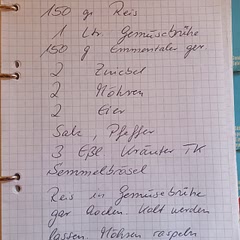 150 gr Reis
1 Ltr. Gemüsebrühe
150 g Emmentaler ger
2 Zwiebel
2 Möhren
2 Eier
Salz, Pfeffer
3 Eßl Kräuter TK
Semmelbrösel
Reis in Gemüsebrühe
gar kochen. Kalt werden
lassen. Möhren raspeln